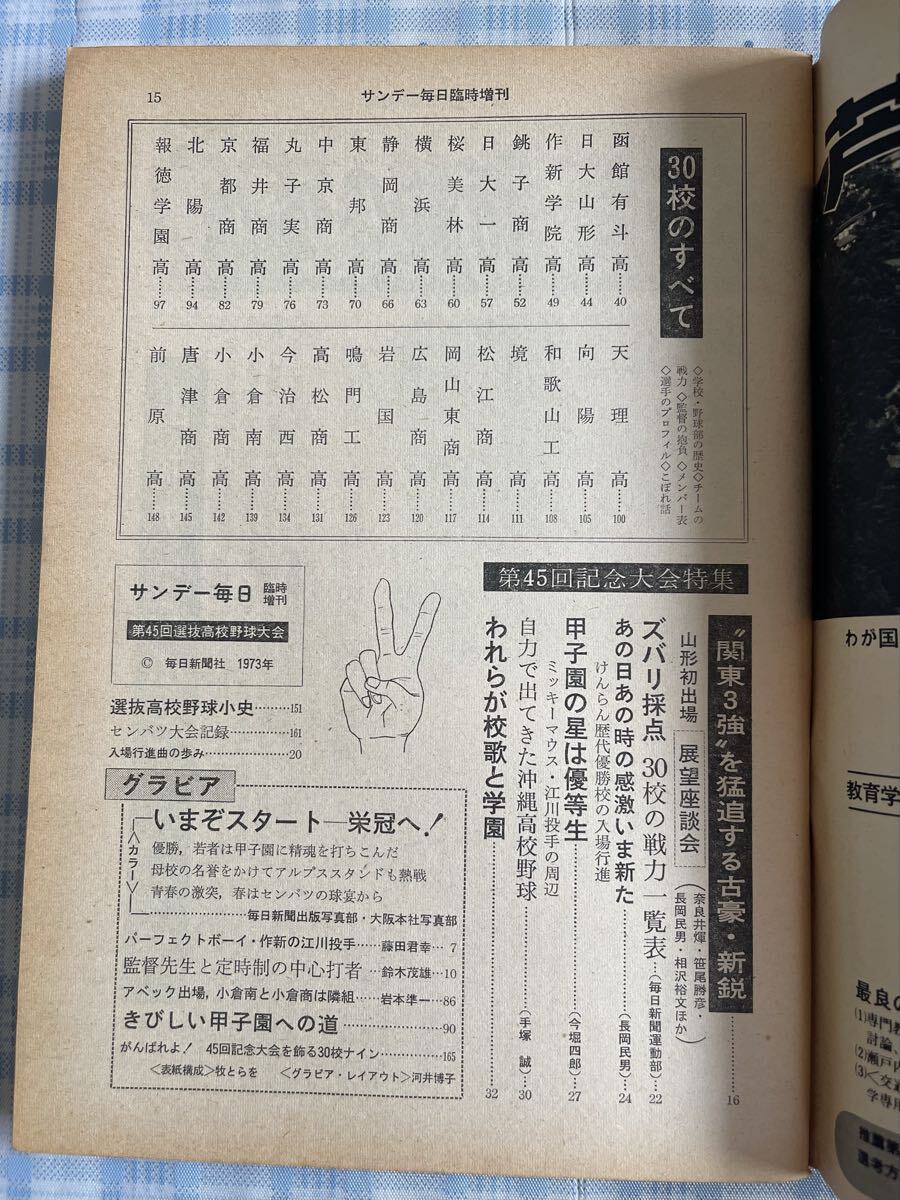 15
サンデー毎日臨時増刊
30校のすべて
◇学校・野球部の歴史◇チームの
戦力◇監督の抱負◇メンバー表
◇選手のプロフィル◇こぼれ話
函館有斗高……40
日大山形高……44
作新学院高……49
銚子商高……52
日大一高……57
桜美林高……60
横浜高……63
静岡商高……66
東邦高……70
中京商高……73
丸子実高……76
福井商高……79
京都商高……82
北陽高……94
報徳学園高……97
天理高……100
向陽高……105
和歌山工高……108
境高……111
松江商高……114
岡山東商高……117
広島商高……120
岩国高……123
鳴門工高……126
高松商高……131
今治西高……134
小倉南高……139
小倉商高……142
唐津商高……145
前原高……148
第45回記念大会特集
“関東3強”を猛追する古豪・新鋭……16
山形初出場 展望座談会(奈良井輝・笹尾勝彦・
長岡民男・相沢裕文ほか)
ズバリ採点 30校の戦力一覧表…(毎日新聞運動部)…22
あの日あの時の感激いま新た……(長岡民男)…24
けんらん歴代優勝校の入場行進
甲子園の星は優等生……(今堀四郎)…27
ミッキーマウス・江川投手の周辺
自力で出てきた沖縄高校野球……(手塚 誠)…30
われらが校歌と学園……32
サンデー毎日 臨時増刊
第45回選抜高校野球大会
© 毎日新聞社 1973年
選抜高校野球小史……151
センバツ大会記録……161
入場行進曲の歩み……20
グラビア
<カラー>
いまぞスタート—栄冠へ!
優勝,若者は甲子園に精魂を打ちこんだ
母校の名誉をかけてアルプススタンドも熱戦
青春の激突,春はセンバツの球宴から
……毎日新聞出版写真部・大阪本社写真部
パーフェクトボーイ・作新の江川投手……藤田君幸…7
監督先生と定時制の中心打者…鈴木茂雄…10
アベック出場,小倉南と小倉商は隣組……岩本準一…86
きびしい甲子園への道……90
がんばれよ! 45回記念大会を飾る30校ナイン……165
<表紙構成>牧とらを <グラビア・レイアウト>河井博子
わが国
教育学
最良の
(1)専門教
討論、
(2)瀬戸内
(3)<交通
学専用
推薦第
選考方